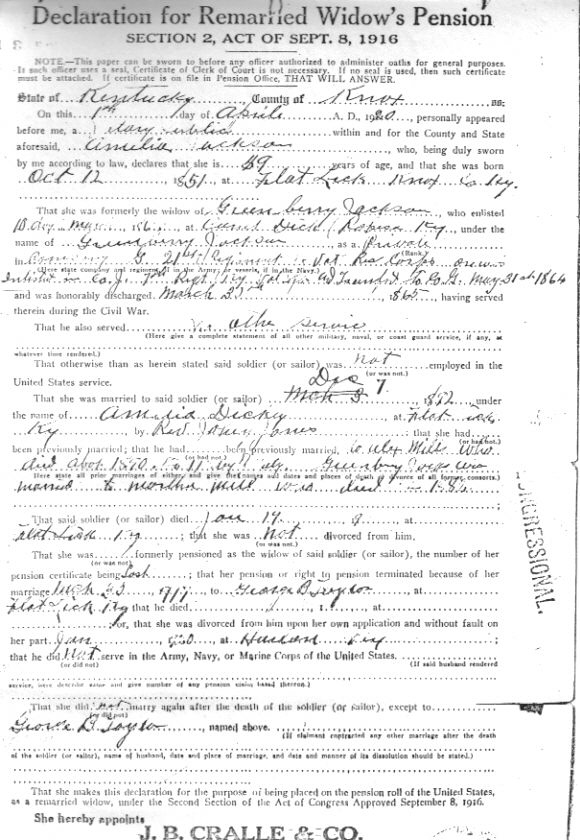 Declaration for Remarried Widow's Pension
SECTION 2, ACT OF SEPT. 8, 1916
NOTE.—This paper can be sworn to before any officer authorized to administer oaths for general purposes.
If such officer uses a seal, Certificate of Clerk of Court is not necessary. If no seal is used, then such certificate
must be attached. If certificate is on file in Pension Office, THAT WILL ANSWER.
State of Kentucky County of Knox ss:
On this day of April A. D., 1920, personally appeared
before me, a within and for the County and State
aforesaid, Amelia Jackson, who, being duly sworn
by me according to law, declares that she is 69 years of age, and that she was born
Oct 12 1851, at Flat Lick Knox Co Ky.
That she was formerly the widow of Green berry Jackson, who enlisted
at Camp Dick Ky, under the
name of Greenberry Jackson, as a Private
(Rank)
in Company G 21st Regiment Vet Res Corps
(Here state company and regiment, if in the Army; or vessels, if in the Navy.)
enlisted in Co. Regt Ky to Co. G. May 31st 1864
and was honorably discharged March 1865, having served
therein during the Civil War.
That he also served No other service
(Here give a complete statement of all other military, naval, or coast guard service, if any, at
whatever time rendered.)
That otherwise than as herein stated said soldier (or sailor) was not employed in the
(or was not.)
United States service. Dec 7
That she was married to said soldier (or sailor) 1872 under
the name of Amelia Dickey at Flat Lick
Ky by Rev Jones; that she had
(or had not.)
been previously married; that he had been previously married, Mills who
(or had not)
died about
(Here state all prior marriages of either, and give the names and dates and places of death or divorce of all former consorts.)
married to Martha Mills who died in
That said soldier (or sailor) died Jan 19 at
Flat Lick Ky; that she was not divorced from him.
(or was not.)
That she was formerly pensioned as the widow of said soldier (or sailor), the number of her
(or was not)
pension certificate being Lost; that her pension or right to pension terminated because of her
marriage 23 1917, to George B Taylor at
Flat Lick Ky that he died
; or, that she was divorced from him upon her own application and without fault on
her part Jan 1920 at Ky;
that he did Not serve in the Army, Navy, or Marine Corps of the United States.
(or did not) (If said husband rendered
service, here describe same and give number of any pension claim based thereon.)
That she did not marry again after the death of the soldier (or sailor), except to
(or did not)
George B Taylor, named above.
(If claimant contracted any other marriage after the death
of the soldier (or sailor), name of husband, date and place of marriage, and date and manner of its dissolution should be stated.)
That she makes this declaration for the purpose of being placed on the pension roll of the United States,
as a remarried widow, under the Second Section of the Act of Congress Approved September 8, 1916.
She hereby appoints
J. B. CRALLE & CO.
CONGRESSIONAL.